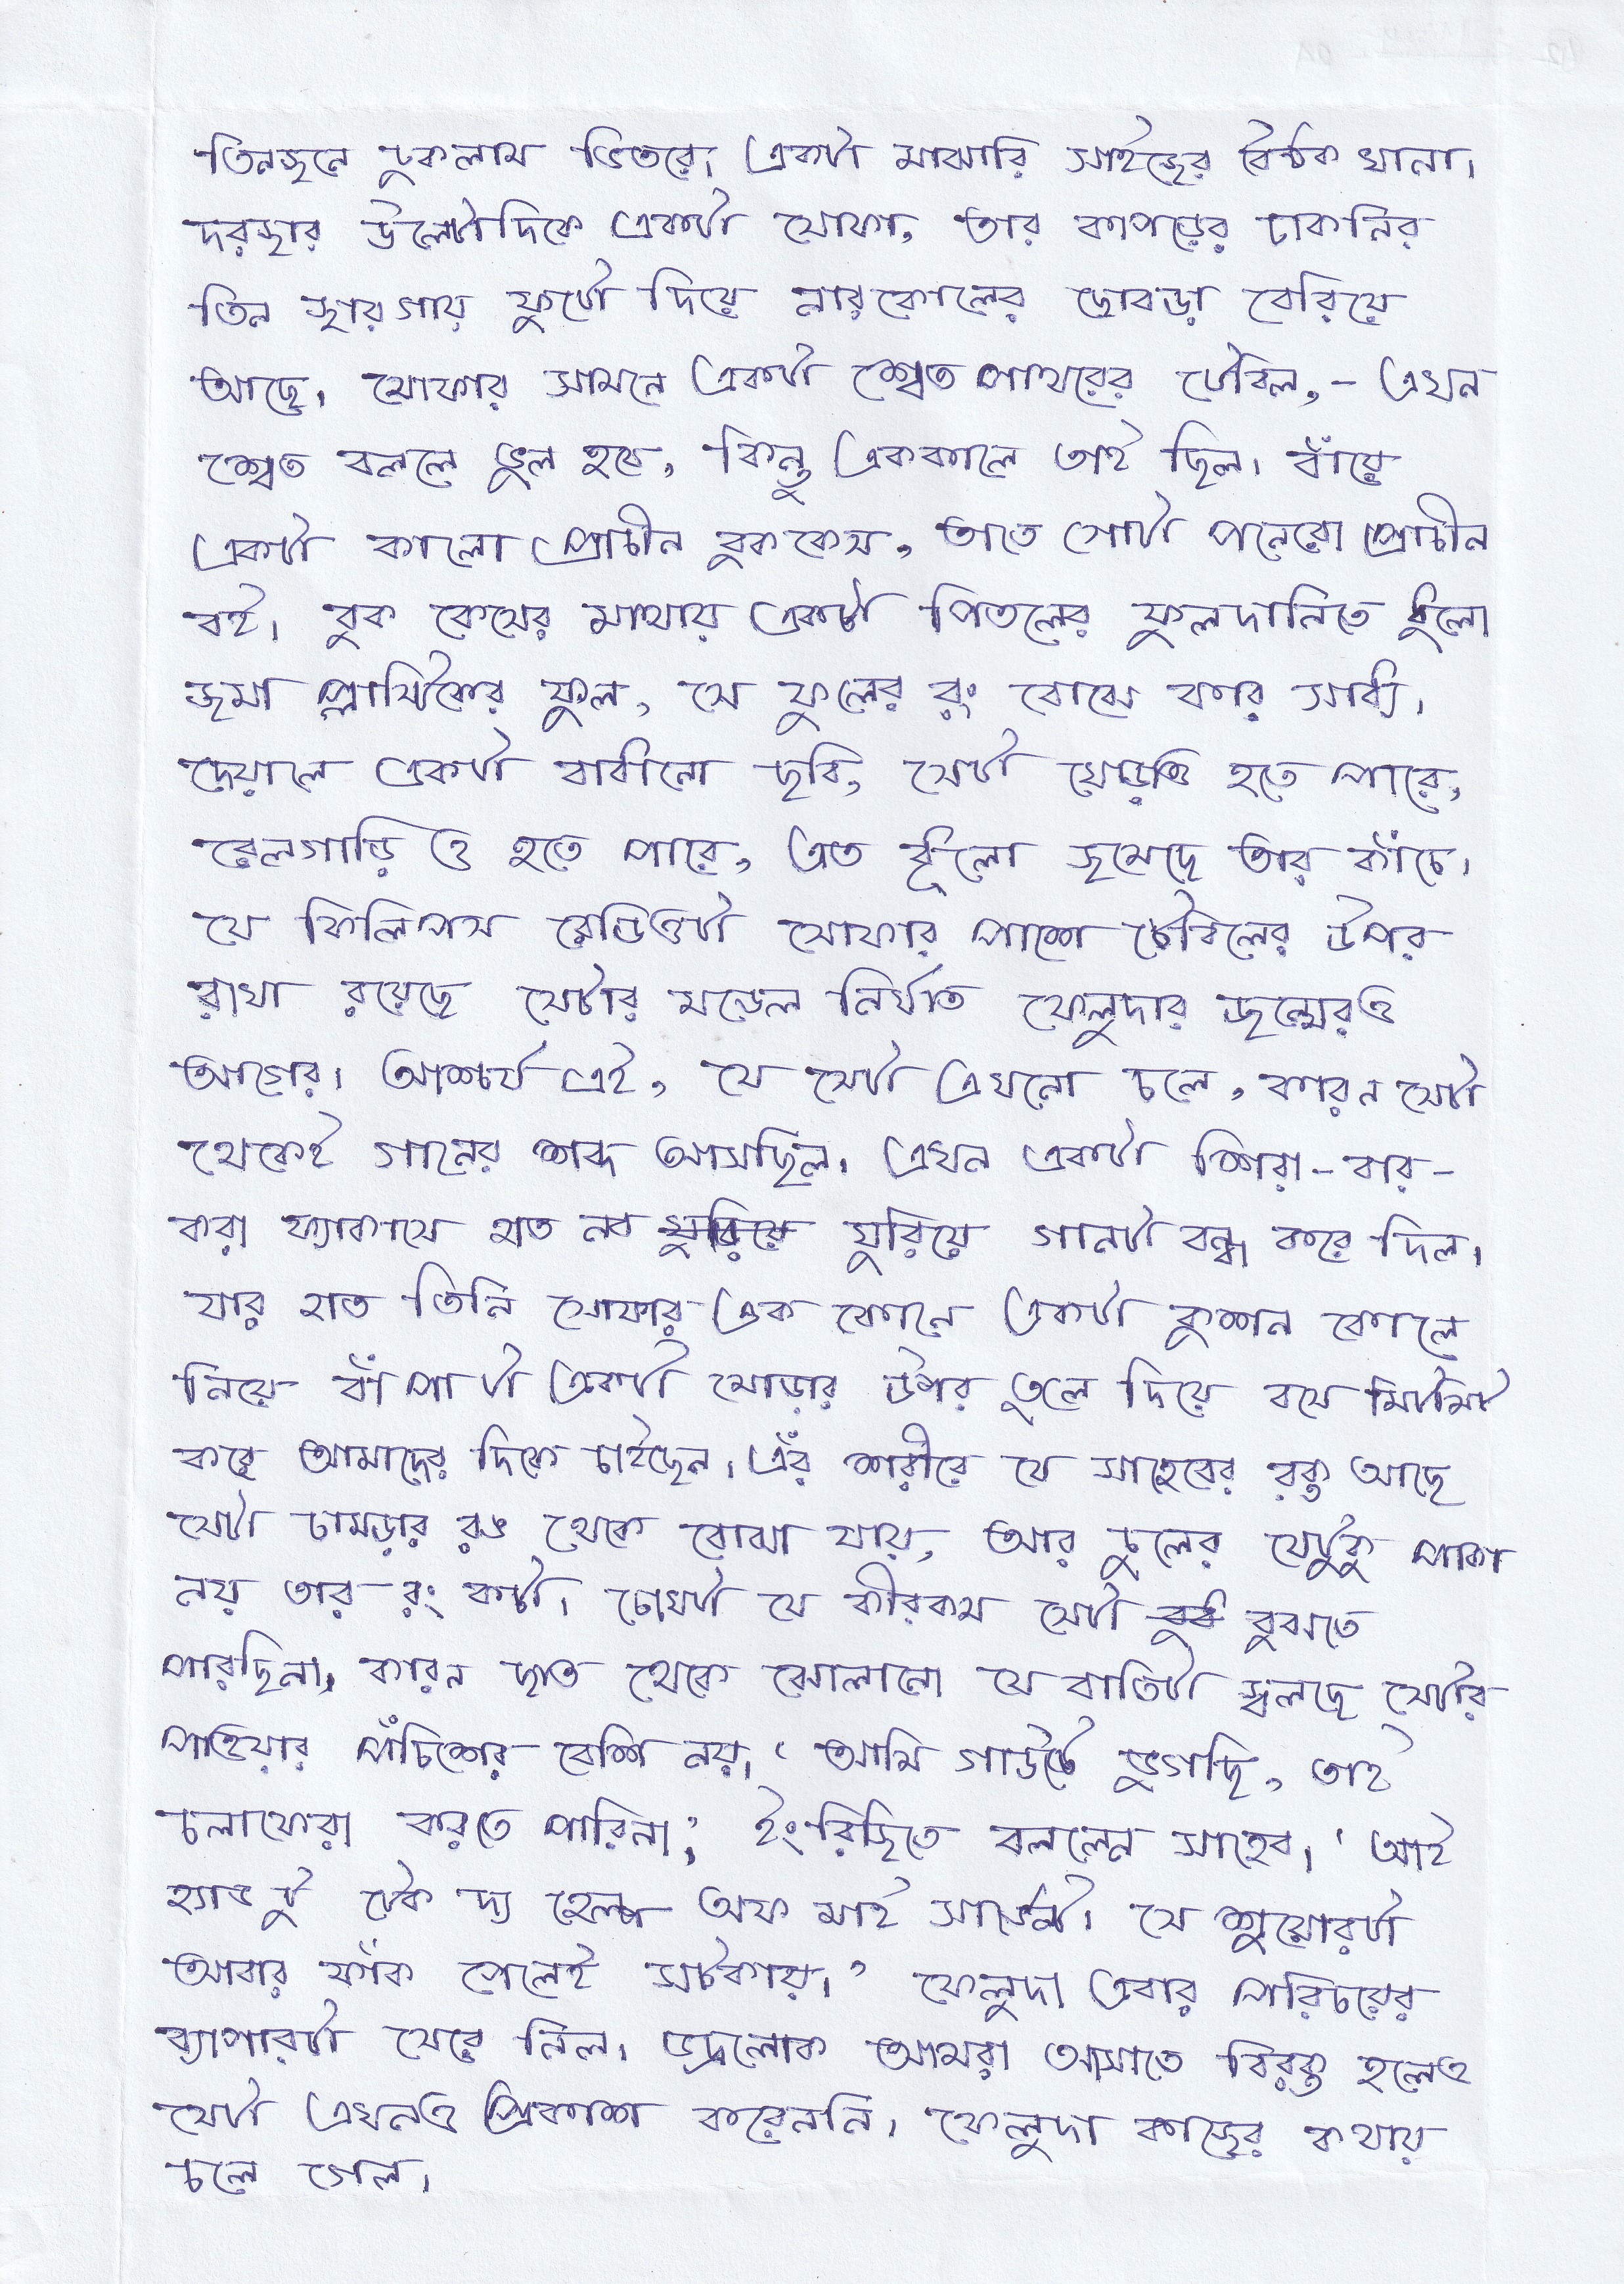 তিনজনে ঢুকলাম ভিতরে। একটা মাঝারি সাইজের বৈঠক খানা।
দরজার উলটোদিকে একটা সোফা, তার কাপড়ের ঢাকনির
তিন জায়গায় ফুটো দিয়ে নারকোলের ছোবড়া বেরিয়ে
আছে। সোফার সামনে একটা শ্বেত পাথরের টেবিল,- এখন
শ্বেত বললে ভুল হবে, কিন্তু এককালে তাই ছিল। বাঁয়ে
একটা কালো প্রাচীন বুককেস, তাতে গোটা পনেরো প্রাচীন
বই। বুক কেসের মাথায় একটা পিতলের ফুলদানিতে ধুলো
জমা প্লাস্টিকের ফুল, সে ফুলের রং বোঝে কার সাধ্যি।
দেয়ালে একটা বাধাঁনো ছবি, সেটা ঘোড়াও হতে পারে,
রেলগাড়ি ও হতে পারে, এত ধূলো জমেছে তার কাঁচে।
যে ফিলিপস রেডিওটা সোফার পাশে টেবিলের উপর
রাখা রয়েছে সেটার মডেল নির্ঘাত ফেলুদার জন্মেরও
আগের। আশ্চর্য এই, যে সেটা এখনো চলে, কারন সেটা
থেকেই গানের শব্দ আসছিল। এখন একটা শিরা-বার-
করা ফ্যাকাসে হাত নব ঘুরিয়ে ঘুরিয়ে গানটা বন্ধ করে দিল।
যার হাত তিনি সোফার এক কোনে একটা কুশন কোলে
নিয়ে বাঁ পা টা একটা মোড়ার উপর তুলে দিয়ে বসে মিটমিট
করে আমাদের দিকে চাইছেন। এঁর শরীরে যে সাহেবের রক্ত আছে
সেটা চামড়ার রঙ থেকে বোঝা যায়, আর চুলের যেটুকু পাকা
নয় তার রং কটা। চোখটা যে কীরকম সেটা বুঝতে
পারছিনা, কারন ছাত থেকে ঝোলানো যে বাতিটা জ্বলছে সেটার
পাওয়ার পঁচিশের বেশি নয়। ‘আমি গাউটে ভুগছি, তাই
চলাফেরা করতে পারিনা,’ ইংরিজিতে বললেন সাহেব। ‘আই
হ্যাভ টু টেক দ্য হেল্প অফ মাই সার্ভেন্ট। সে শুয়োরটা
আবার ফাঁক পেলেই সটকায়।’ ফেলুদা এবার পরিচয়ের
ব্যাপারটা সেরে নিল। ভদ্রলোক আমরা আসাতে বিরক্ত হলেও
সেটা এখনও প্রকাশ করেননি। ফেলুদা কাজের কথায়
চলে গেল।